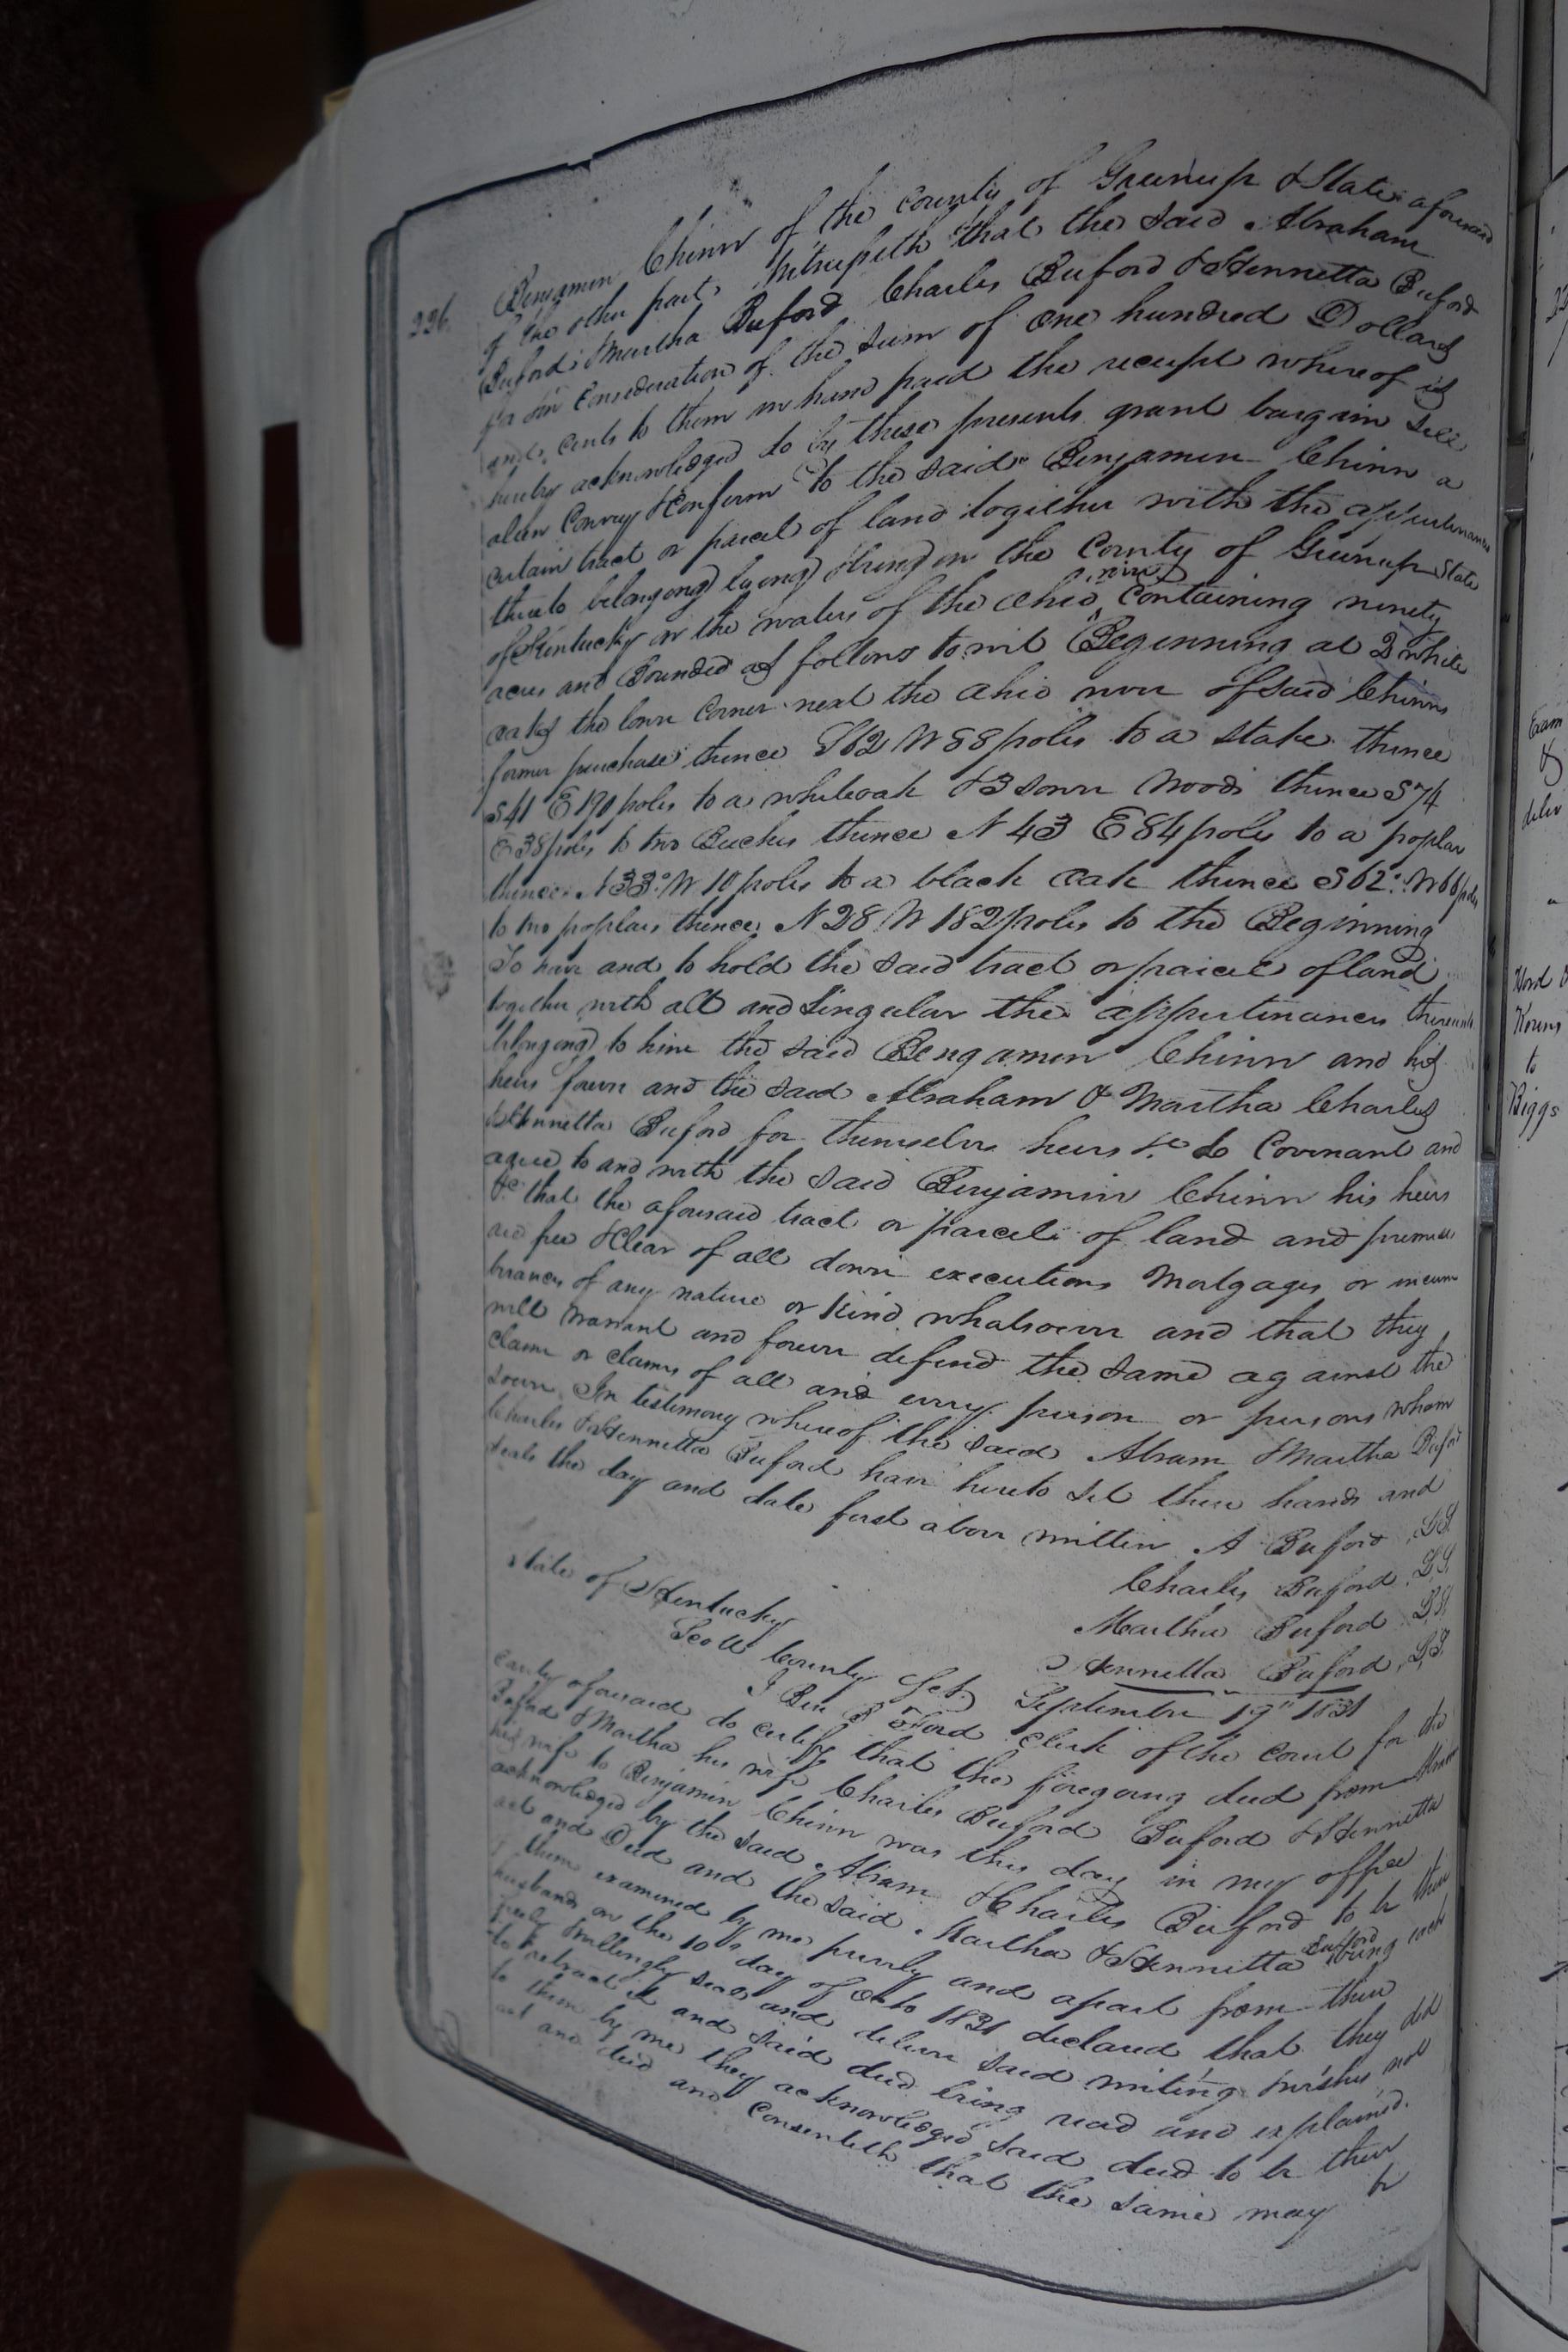 226.
Benjamin Chinn of the county of Greenup & State aforesaid
of the other part, Witnesseth that the said Abraham
Buford & Martha Buford Charles Buford & Hennetta Buford
for & in Consideration of the sum of one hundred Dollars
and cents to them in hand paid the receipt whereof is
hereby acknowledged do by these presents grant bargain sell
alien Convey & Confirm to the said Benjamin Chinn a
certain tract or parcel of land together with the appurtenances
thereto belonging lying & being in the County of Greenup State
of Kentucky on the waters of the Ohio river Containing ninety
acres and Bounded as follows to wit Beginning at 2 white
oaks the lower Corner next the Ohio river of said Chinns
former purchase thence S62 W 88 poles to a stake thence
S41 E 190 poles to a whiteoak & 3 sour Woods thence S74
E 38 poles to two Buches thence N 43 E 84 poles to a poplar
thence N33° W 10 poles to a black oak thence S62° W 66 poles
to two poplars thence N28 W 182 poles to the Beginning
To have and to hold the said tract or praicel of land
together with all and singular the appurtinances thereunto
belonging to him the said Bengamin Chinn and his
heirs forever and the said Abraham & Martha Charles
& Hennetta Buford for themselves heirs &c do Covenant and
agree to and with the said Benjamin Chinn his heirs
&c that the aforesaid tract or parcel of land and premises
are free & Clear of all dower executions Mortgages or incum
brances of any nature or kind whatsoever and that they
will warrant and forever defend the same against the
claim or claims of all and every person or persons whom
soever In testimony whereof the said Abram & Martha Buford
Charles & Hennetta Buford have hereto set there hands and
seals the day and date first above written A Buford LS
Charles Buford LS
Martha Buford LS
Hennetta Buford LS
State of Kentucky
Scott County Sct September 19th 1831
I Ben B Ford Clerk of the Court for the
County aforesaid do certify that the foregoing deed from Abram
Buford & Martha his wife Charles Buford Buford & Hennetta
his wife to Benjamin Chinn was this day in my office
acknowledged by the said Abram & Charles Buford to be their
act and Deed and the said Martha & Hennetta Buford being each
of them examined by me privily and apart from their
husbands on the 10th day of Octo 1831 declared that they did
freely & willingly seal and deliver said writing & wishes not
to retract it and said deed being read and explained
to them by me they acknowledged said deed to be their
act and deed and Consenteth that the same may be
Exam
&
deliv
Kouns
to
Biggs